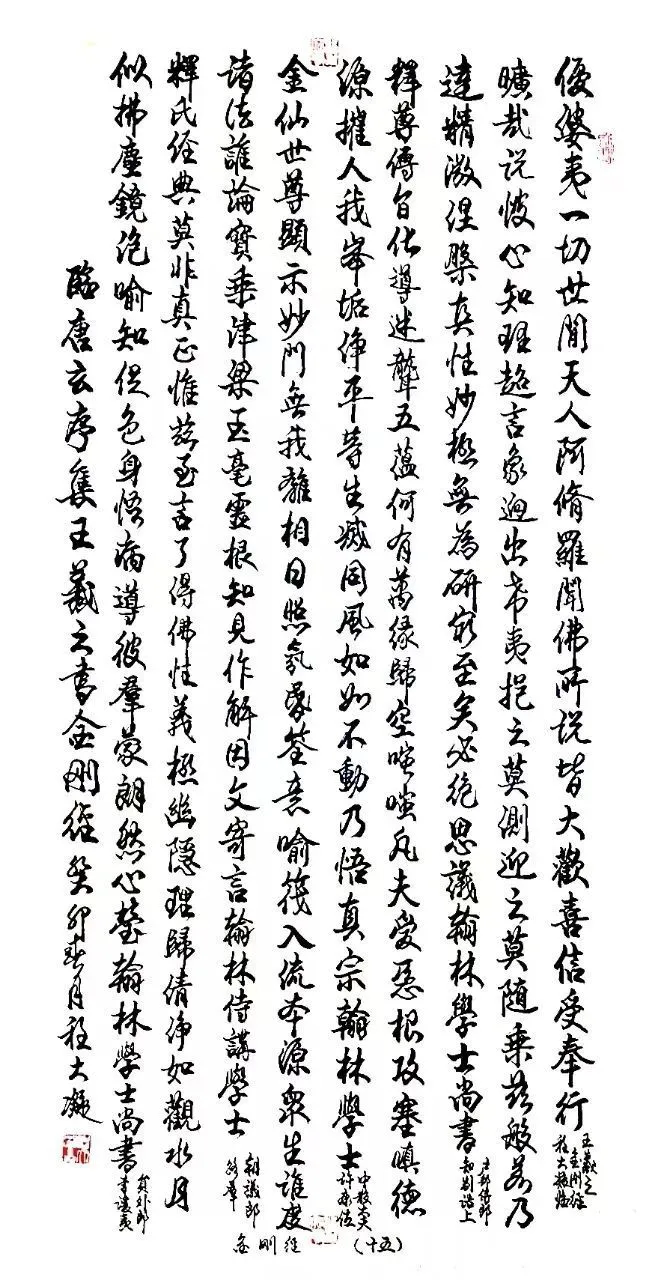 優婆夷一切世間天人阿脩羅聞佛所說皆大歡喜信受奉行
王羲之金剛經
程大凝臨
曠哉說彼心知理超言象迥出希夷挹之莫測迎之莫隨乘茲般若乃
達精微涅槃真性妙極無為研窮至矣必絕思議翰林學士尚書
知制誥上
釋尊傳旨化導迷聾五蘊何有萬緣歸空嗤嗤凡夫受惡根攻塞嗔德
源摧人我峯垢淨平等生滅同風如如不動乃悟真宗翰林學士
中散大夫
金仙世尊顯示妙門無我離相日照氛昏筌意喻筏入流本源眾生誰度
諸法誰論寶乘津梁玉毫靈根知見作解因文寄言翰林侍講學士
朝議郎
釋氏經典莫非真正惟茲至言了得佛性義極幽隱理歸清淨如觀水月
似拂塵鏡泡喻知促色身悟病導彼群蒙朗然心瑩翰林學士尚書
員外郎
臨唐玄序集王羲之書金剛經癸卯春月程大凝
金剛經 (十五)